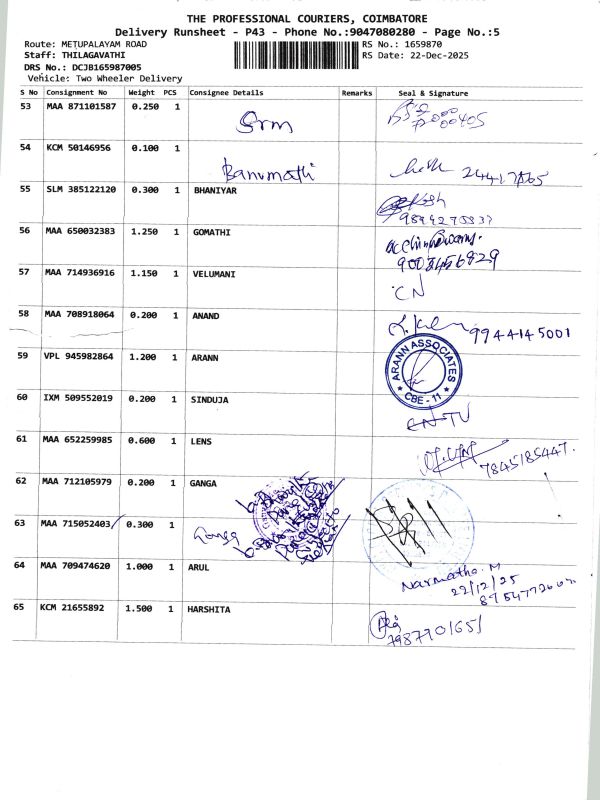 THE PROFESSIONAL COURIERS, COIMBATORE
Delivery Runsheet - P43 - Phone No.:9047080280 - Page No.:5
Route: METUPALAYAM ROAD
RS No.: 1659870
Staff: THILAGAVATHI
RS Date: 22-Dec-2025
DRS No.: DCJB165987005
Vehicle: Two Wheeler Delivery
S No Consignment No Weight PCS Consignee Details Remarks Seal & Signature
53 MAA 871101587 0.250 1 Srm
54 KCM 50146956 0.100 1 Banumathi
55 SLM 385122120 0.300 1 BHANIYAR
56 MAA 650032383 1.250 1 GOMATHI
57 MAA 714936916 1.150 1 VELUMANI CN
58 MAA 708918064 0.200 1 ANAND 9944145001
59 VPL 945982864 1.200 1 ARANN ARANN ASSOCIATES CBE - 11
60 IXM 509552019 0.200 1 SINDUJA
61 MAA 652259985 0.600 1 LENS 7845185447.
62 MAA 712105979 0.200 1 GANGA
63 MAA 715052403 0.300 1 Ganga
64 MAA 709474620 1.000 1 ARUL Narmatha. M
22/12/25
65 KCM 21655892 1.500 1 HARSHITA